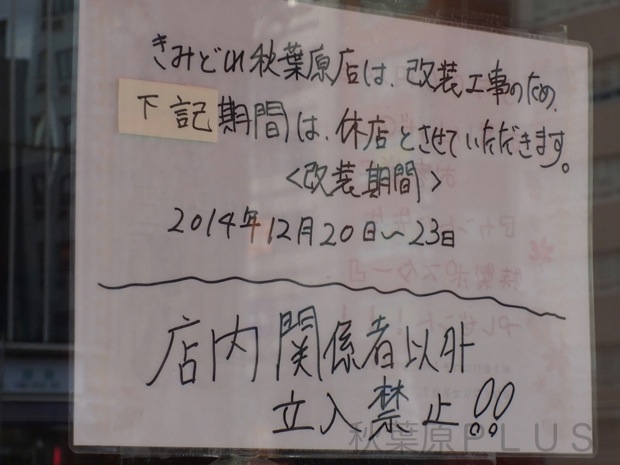 きみどり秋葉原店は、改装工事のため、
下記期間は、休店とさせていただきます。
<改装期間>
2014年12月20日〜23日
店内関係者以外
立入禁止!!
秋葉原PLUS